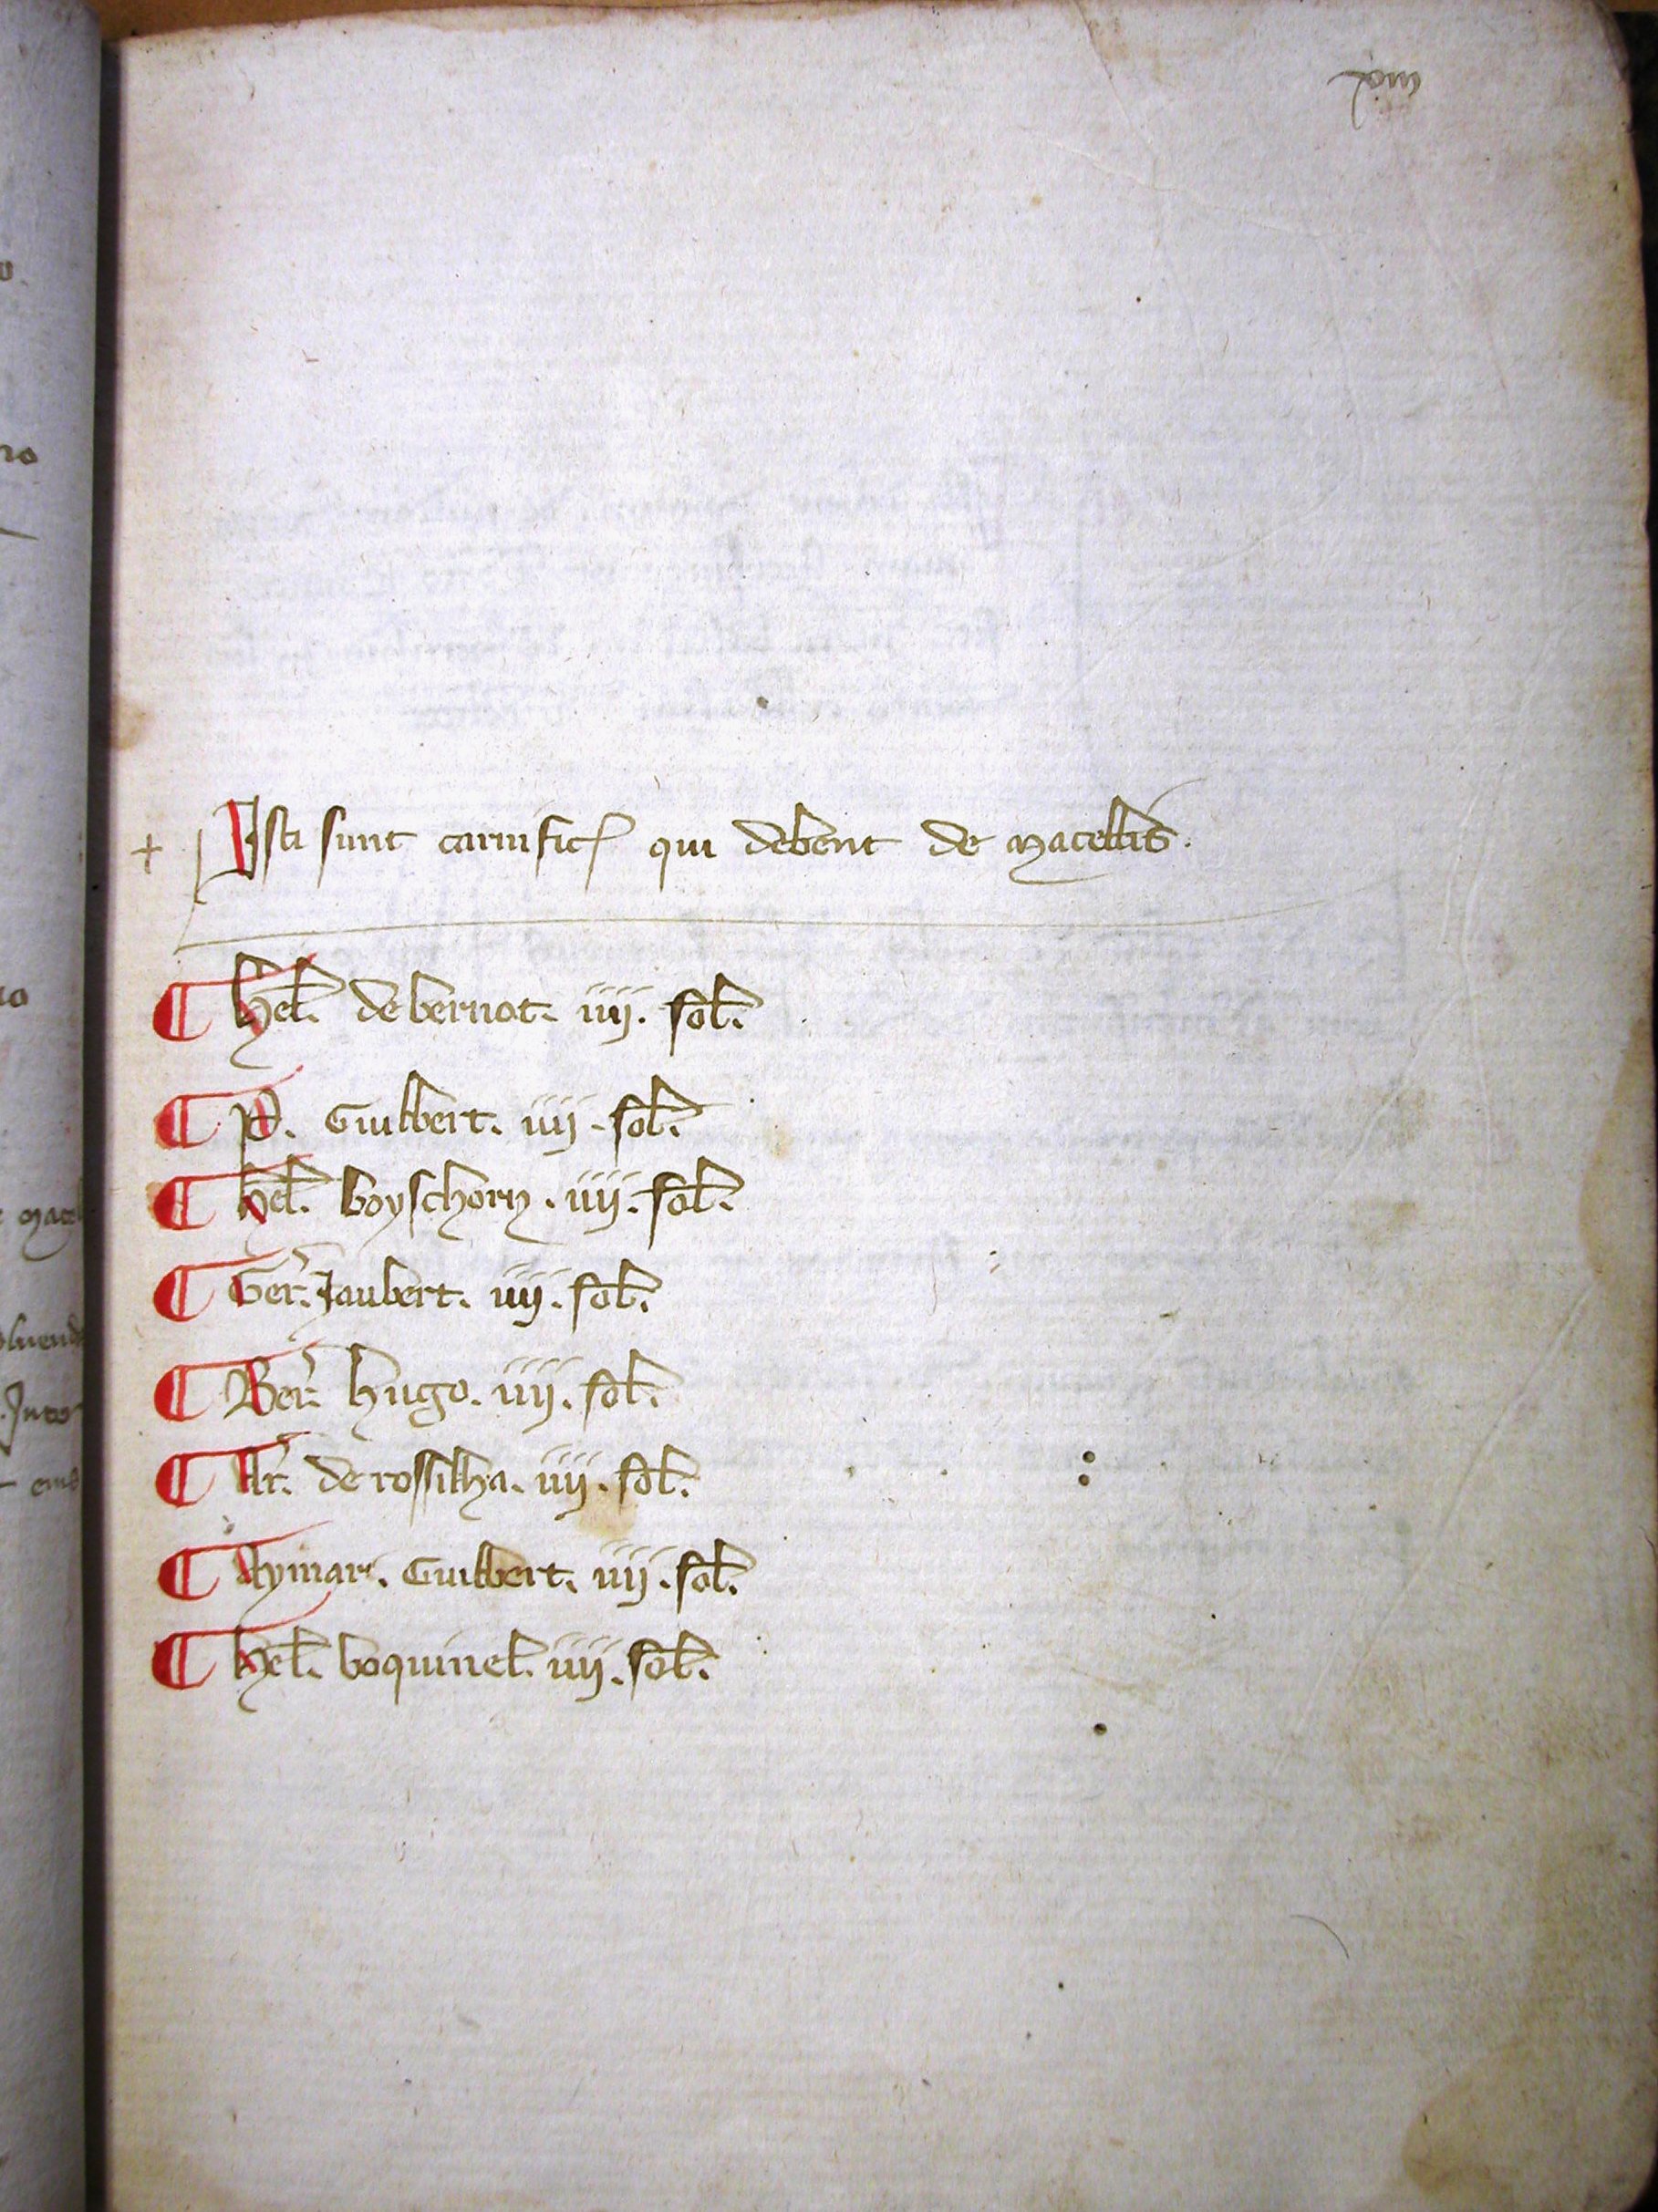 xiiii
+ Isti sunt carnific qui debent de macellis.
¶ hel. de bernot. iiij. sol.
¶ P. Guilbert. iiij. sol.
¶ hel. boyschorn. iiij. sol.
¶ Ger. Jaubert. iiij. sol.
¶ Ber. hugo. iiij. sol.
¶ Ar. de rossilha. iiij. sol.
¶ Aymar. Guilbert. iiij. sol.
¶ hel. boquinel. iiij. sol.